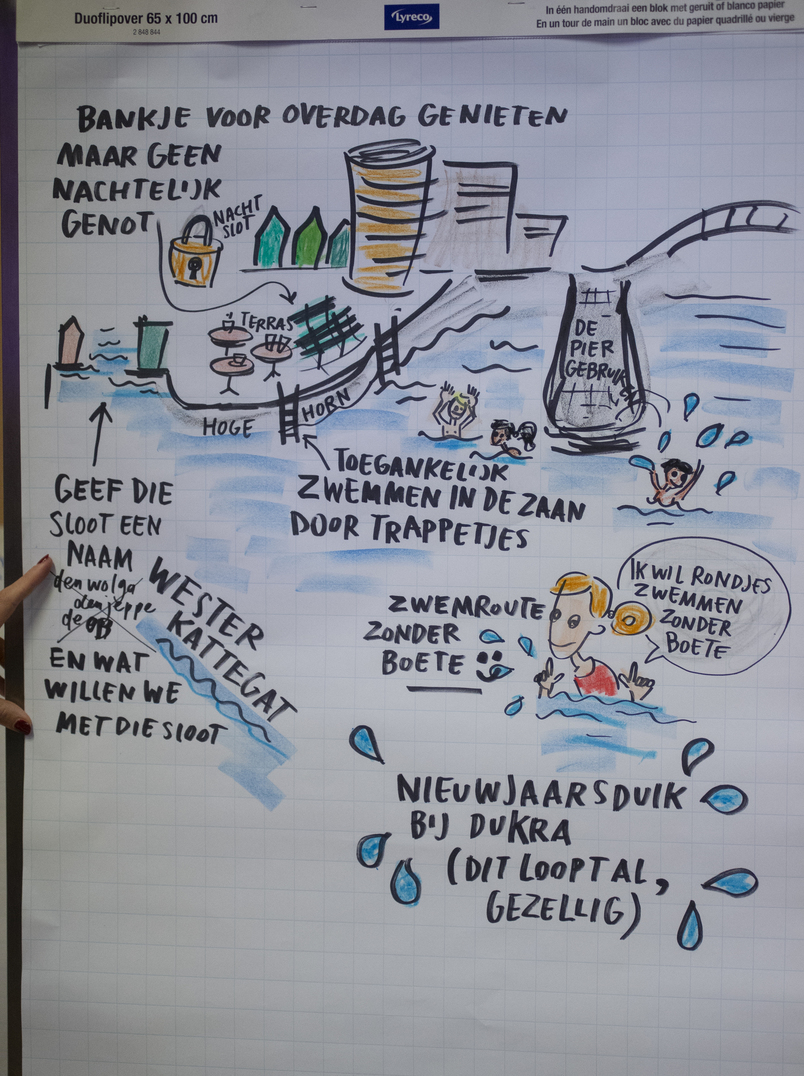 Duoflipover 65 x 100 cm
2 848 844
Lyreco
In één handomdraai een blok met geruit of blanco papier
En un tour de main un bloc avec du papier quadrillé ou vierge
BANKJE VOOR OVERDAG GENIETEN
MAAR GEEN
NACHTELIJK
GENOT
NACHT
SLOT
TERRAS
DE
PIER
GEBRUIKEN
HOGE HORN
TOEGANKELIJK
ZWEMMEN IN DE ZAAN
DOOR TRAPPETJES
GEEF DIE
SLOOT EEN
NAAM
den wolga
den jeppe
de
EN WAT
WILLEN WE
MET DIE SLOOT
WESTER
KATTEGAT
ZWEMROUTE
ZONDER
BOETE
IK WIL RONDJES
ZWEMMEN
ZONDER
BOETE
NIEUWJAARSDUIK
BIJ DUKRA
(DIT LOOPT AL,
GEZELLIG)